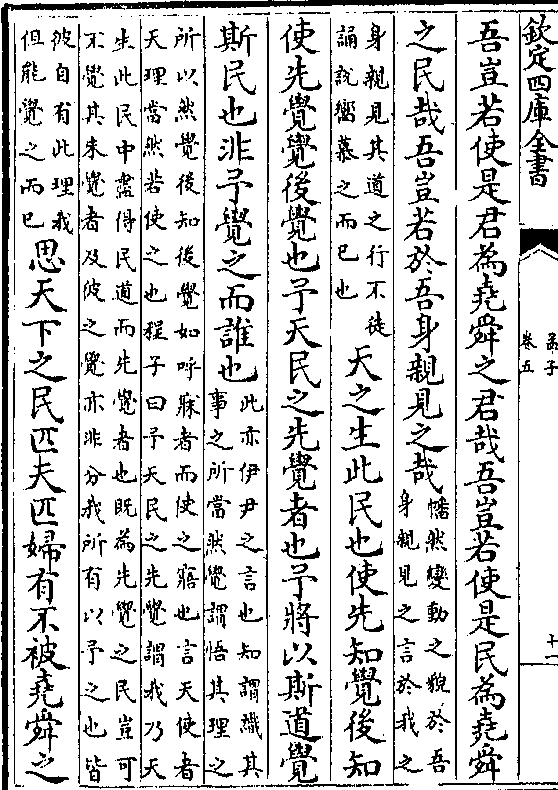 欽定四庫全書
孟子
卷五
十一
吾豈若使是君為堯舜之君哉吾豈若使是民為堯舜
之民哉吾豈若於吾身親見之哉
幡然變動之貌於吾
身親見之言於我之
身親見其道之行不徒
誦說嚮慕之而已也
天之生此民也使先知覺後知
使先覺覺後覺也予天民之先覺者也予將以斯道覺
斯民也非予覺之而誰也
此亦伊尹之言也知謂識其
事之所當然覺謂悟其理之
所以然覺後知後覺如呼寐者而使之寤也言天使者
天理當然若使之也程子曰予天民之先覺謂我乃天
生此民中盡得民道而先覺者也既為先覺之民豈可
不覺其未覺者及彼之覺亦非分我所有以予之也皆
彼自有此理我
但能覺之而已
思天下之民匹夫匹婦有不被堯舜之